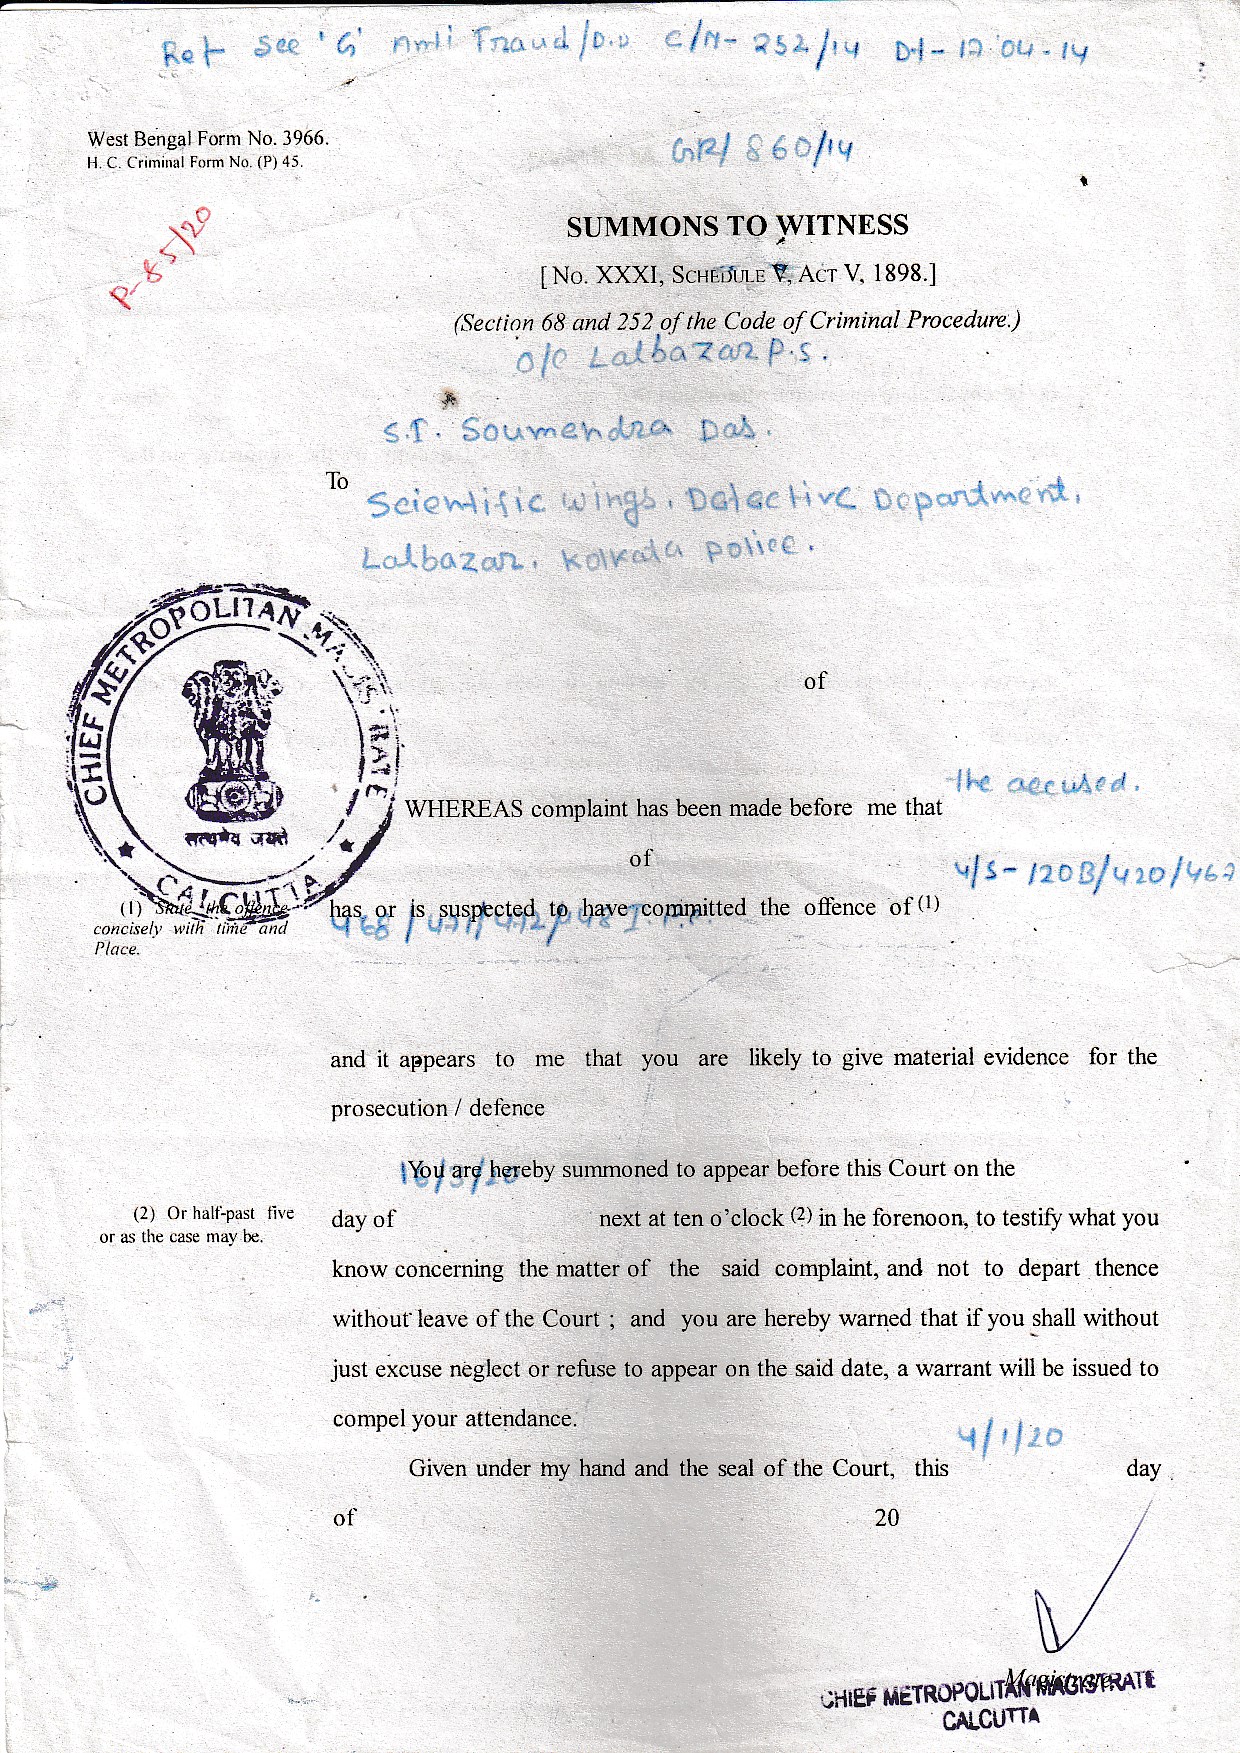 Ref See 'G' Anti Fraud/D.D C/N- 252/14 Dt- 17.04.14
West Bengal Form No. 3966.
H. C. Criminal Form No. (P) 45.
GR/ 860/14
P-85/20
SUMMONS TO WITNESS
[ No. XXXI, SCHEDULE V, ACT V, 1898.]
(Section 68 and 252 of the Code of Criminal Procedure.)
O/C Lalbazar P.S.
S.I. Soumendra Das.
To
Scientific Wings, Detective Department,
Lalbazar, Kolkata police.
CHIEF METROPOLITAN MAGISTRATE
सत्यमेव जयते
CALCUTTA
of
the accused.
WHEREAS complaint has been made before me that
of
u/s- 120B/420/467
(1) State the offence concisely with time and Place.
has or is suspected to have committed the offence of (1)
468/471/472/ I.P.C.
and it appears to me that you are likely to give material evidence for the
prosecution / defence
You are hereby summoned to appear before this Court on the
16/3/20
(2) Or half-past five
or as the case may be.
day of next at ten o'clock (2) in he forenoon, to testify what you
know concerning the matter of the said complaint, and not to depart thence
without leave of the Court ; and you are hereby warned that if you shall without
just excuse neglect or refuse to appear on the said date, a warrant will be issued to
compel your attendance.
4/1/20
Given under my hand and the seal of the Court, this day
of 20
Magistrate
CHIEF METROPOLITAN MAGISTRATE
CALCUTTA